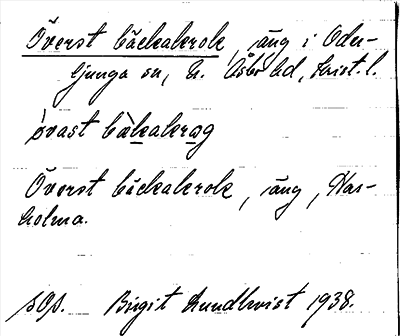 Överst bäckakrok, äng i Oder-
ljunga sn, N. Åsbo hd, Krist. l.
øvast bækakrog
Överst bäckakrok, äng, Has-
holma.
sOs. Birgit Lundkvist 1938.